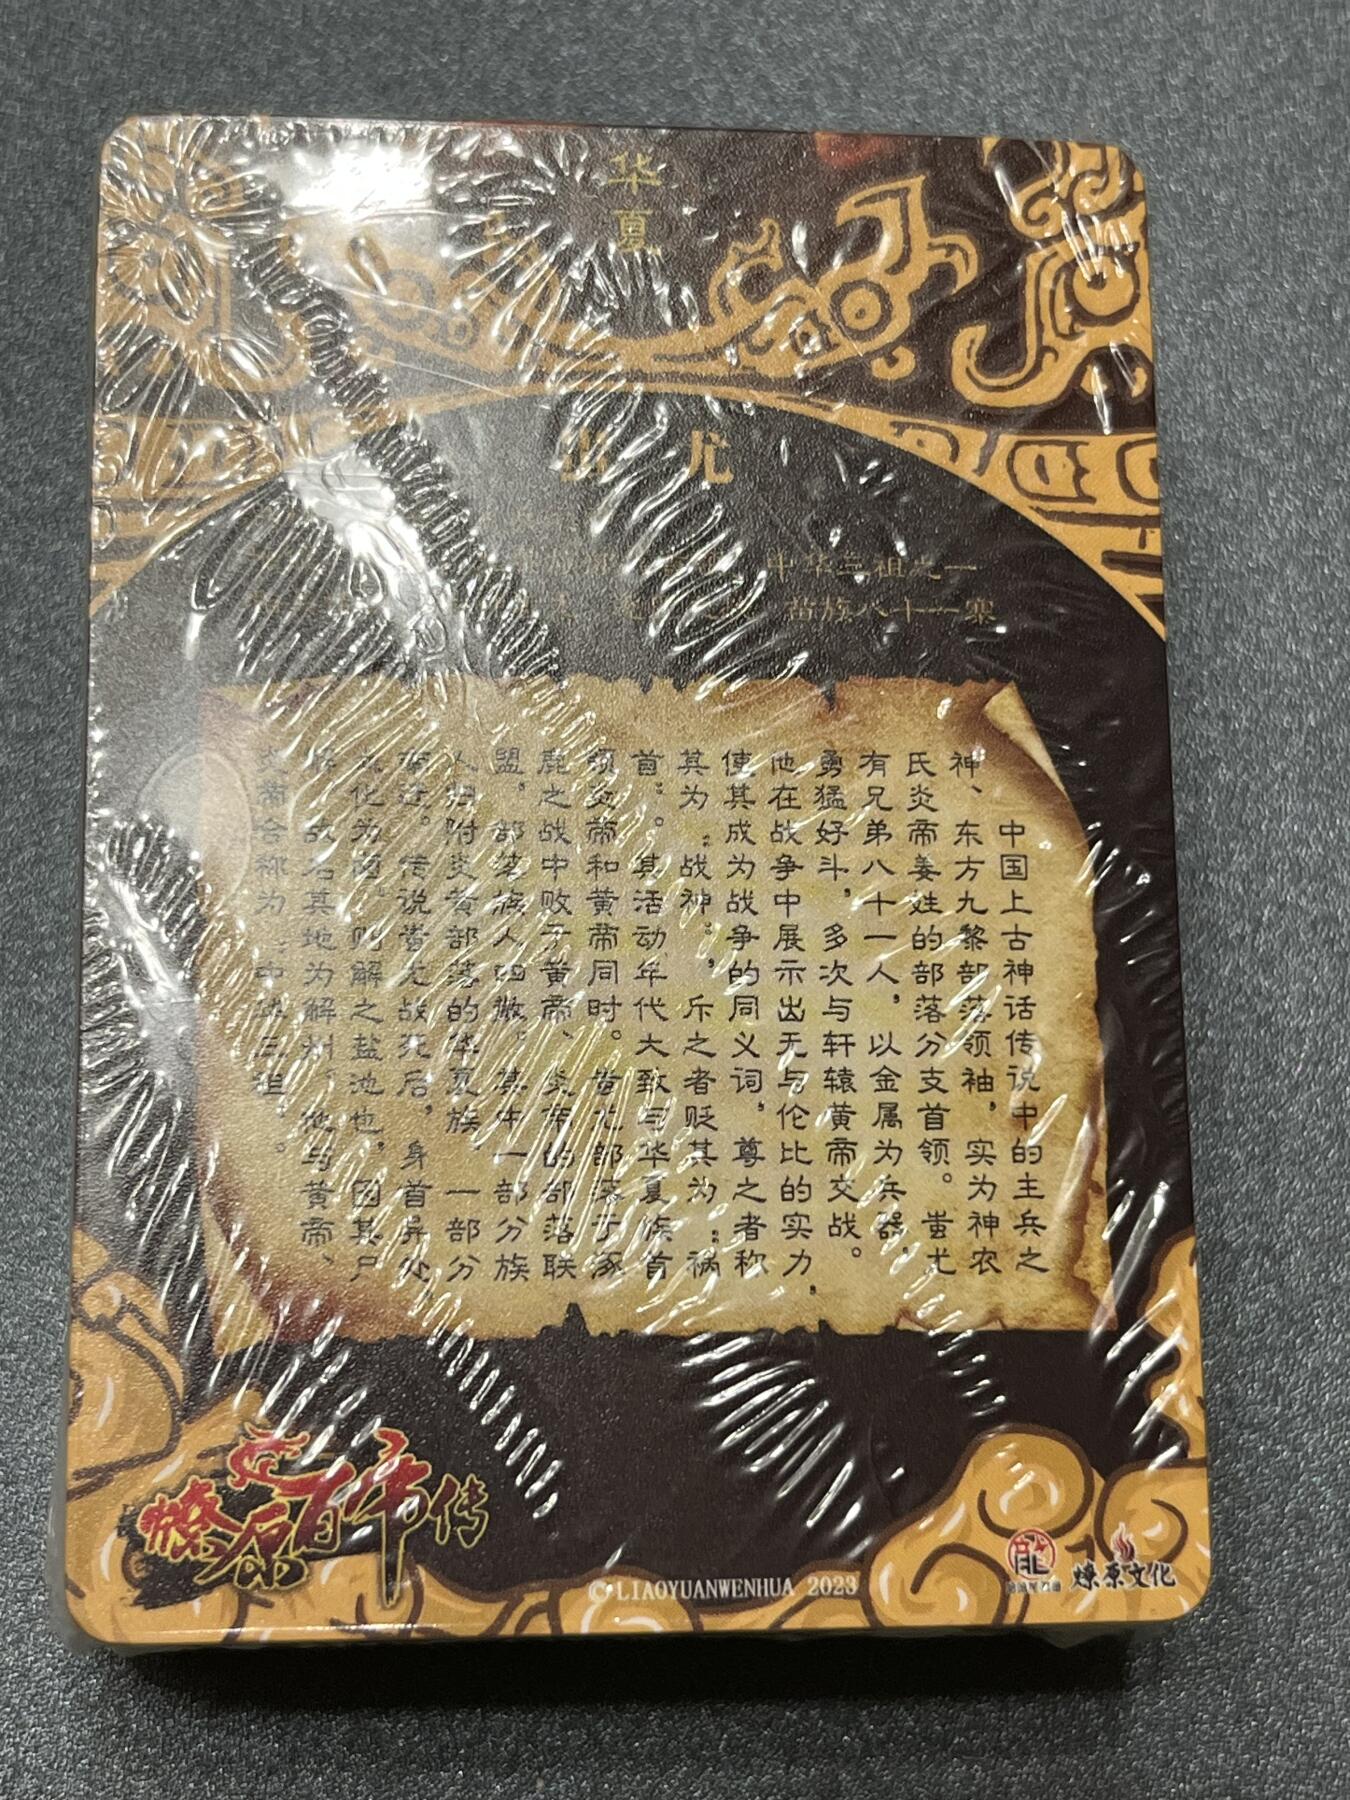 华
夏
蚩 尤
中华三祖之一
苗族八十一寨
中国上古神话传说中的主兵之
神、东方九黎部落领袖，实为神农
氏炎帝姜姓的部落分支首领。蚩尤
有兄弟八十一人，以金属为兵器，
勇猛好斗，多次与轩辕黄帝交战。
他在战争中展示出无与伦比的实力，
使其成为战争的同义词，尊之者称
其为“战神”，斥之者贬其为“祸
首”。其活动年代大致与华夏族首
领炎帝和黄帝同时。蚩尤部落于涿
鹿之战中败于黄帝、炎帝的部落联
盟，部落族人四散。其中一部分族
人归附炎黄部落的华夏族，一部分
南迁。传说蚩尤战死后，身首异处，
血化为卤。则解之盐池也，因其尸
解，故名其地为解州。他与黄帝、
炎帝合称为“中华三祖”。
燎原百帝传
© LIAOYUANWENHUA 2023
龍
燎原文化